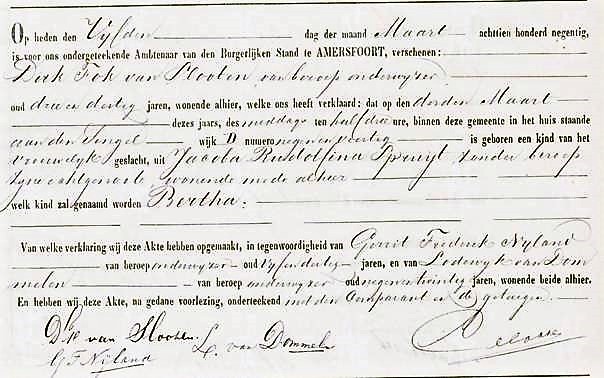 Op heden den Vijfden dag der maand Maart achttien honderd negentig,
is voor ons ondergeteekende Ambtenaar van den Burgerlijken Stand te AMERSFOORT, verschenen:
Dirk Fok van Slooten, van beroep onderwijzer
oud drie en dertig jaren, wonende alhier, welke ons heeft verklaard: dat op den derden Maart
dezes jaars, des middags ten half drie ure, binnen deze gemeente in het huis staande
aan den Singel wijk D numero negen en veertig is geboren een kind van het
vrouwelijk geslacht, uit Jacoba Rudolfina Spruijt, zonder beroep
zijne echtgenoote, wonende mede alhier
welk kind zal genaamd worden Bertha.
Van welke verklaring wij deze Akte hebben opgemaakt, in tegenwoordigheid van Gerrit Frederik Nijland
van beroep onderwijzer oud vijf en dertig jaren, en van Lodewijk van Dom
melen van beroep onderwijzer oud negen en twintig jaren, wonende beide alhier.
En hebben wij deze Akte, na gedane voorlezing, onderteekend met den Comparant en de getuigen.
D. F. van Slooten.
L. van Dommelen
G F Nijland